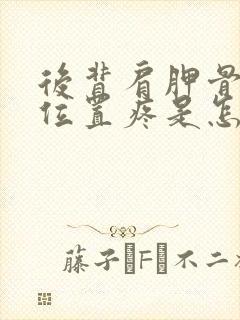 後背肩胛骨
位置疼是怎
藤子・F・不二